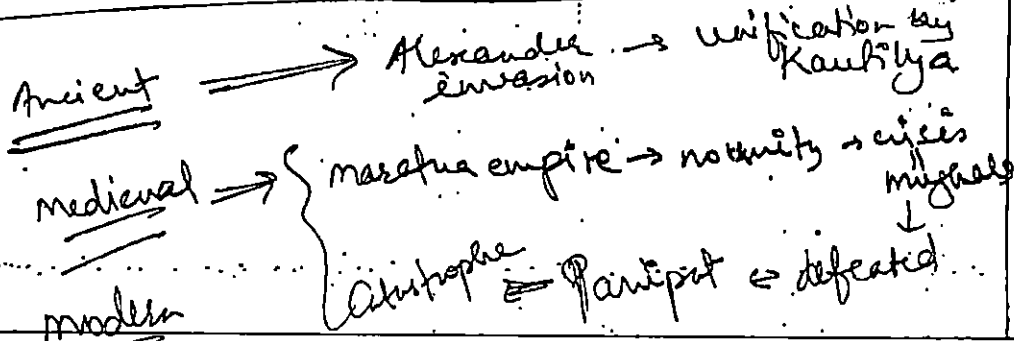 Ancient ⇒ Alexander invasion → unification by Kautilya
medieval ⇒ { maratha empire → no unity → crisis
mughals
↓
Catastrophe ⇐ Panipat ⇐ defeated
modern